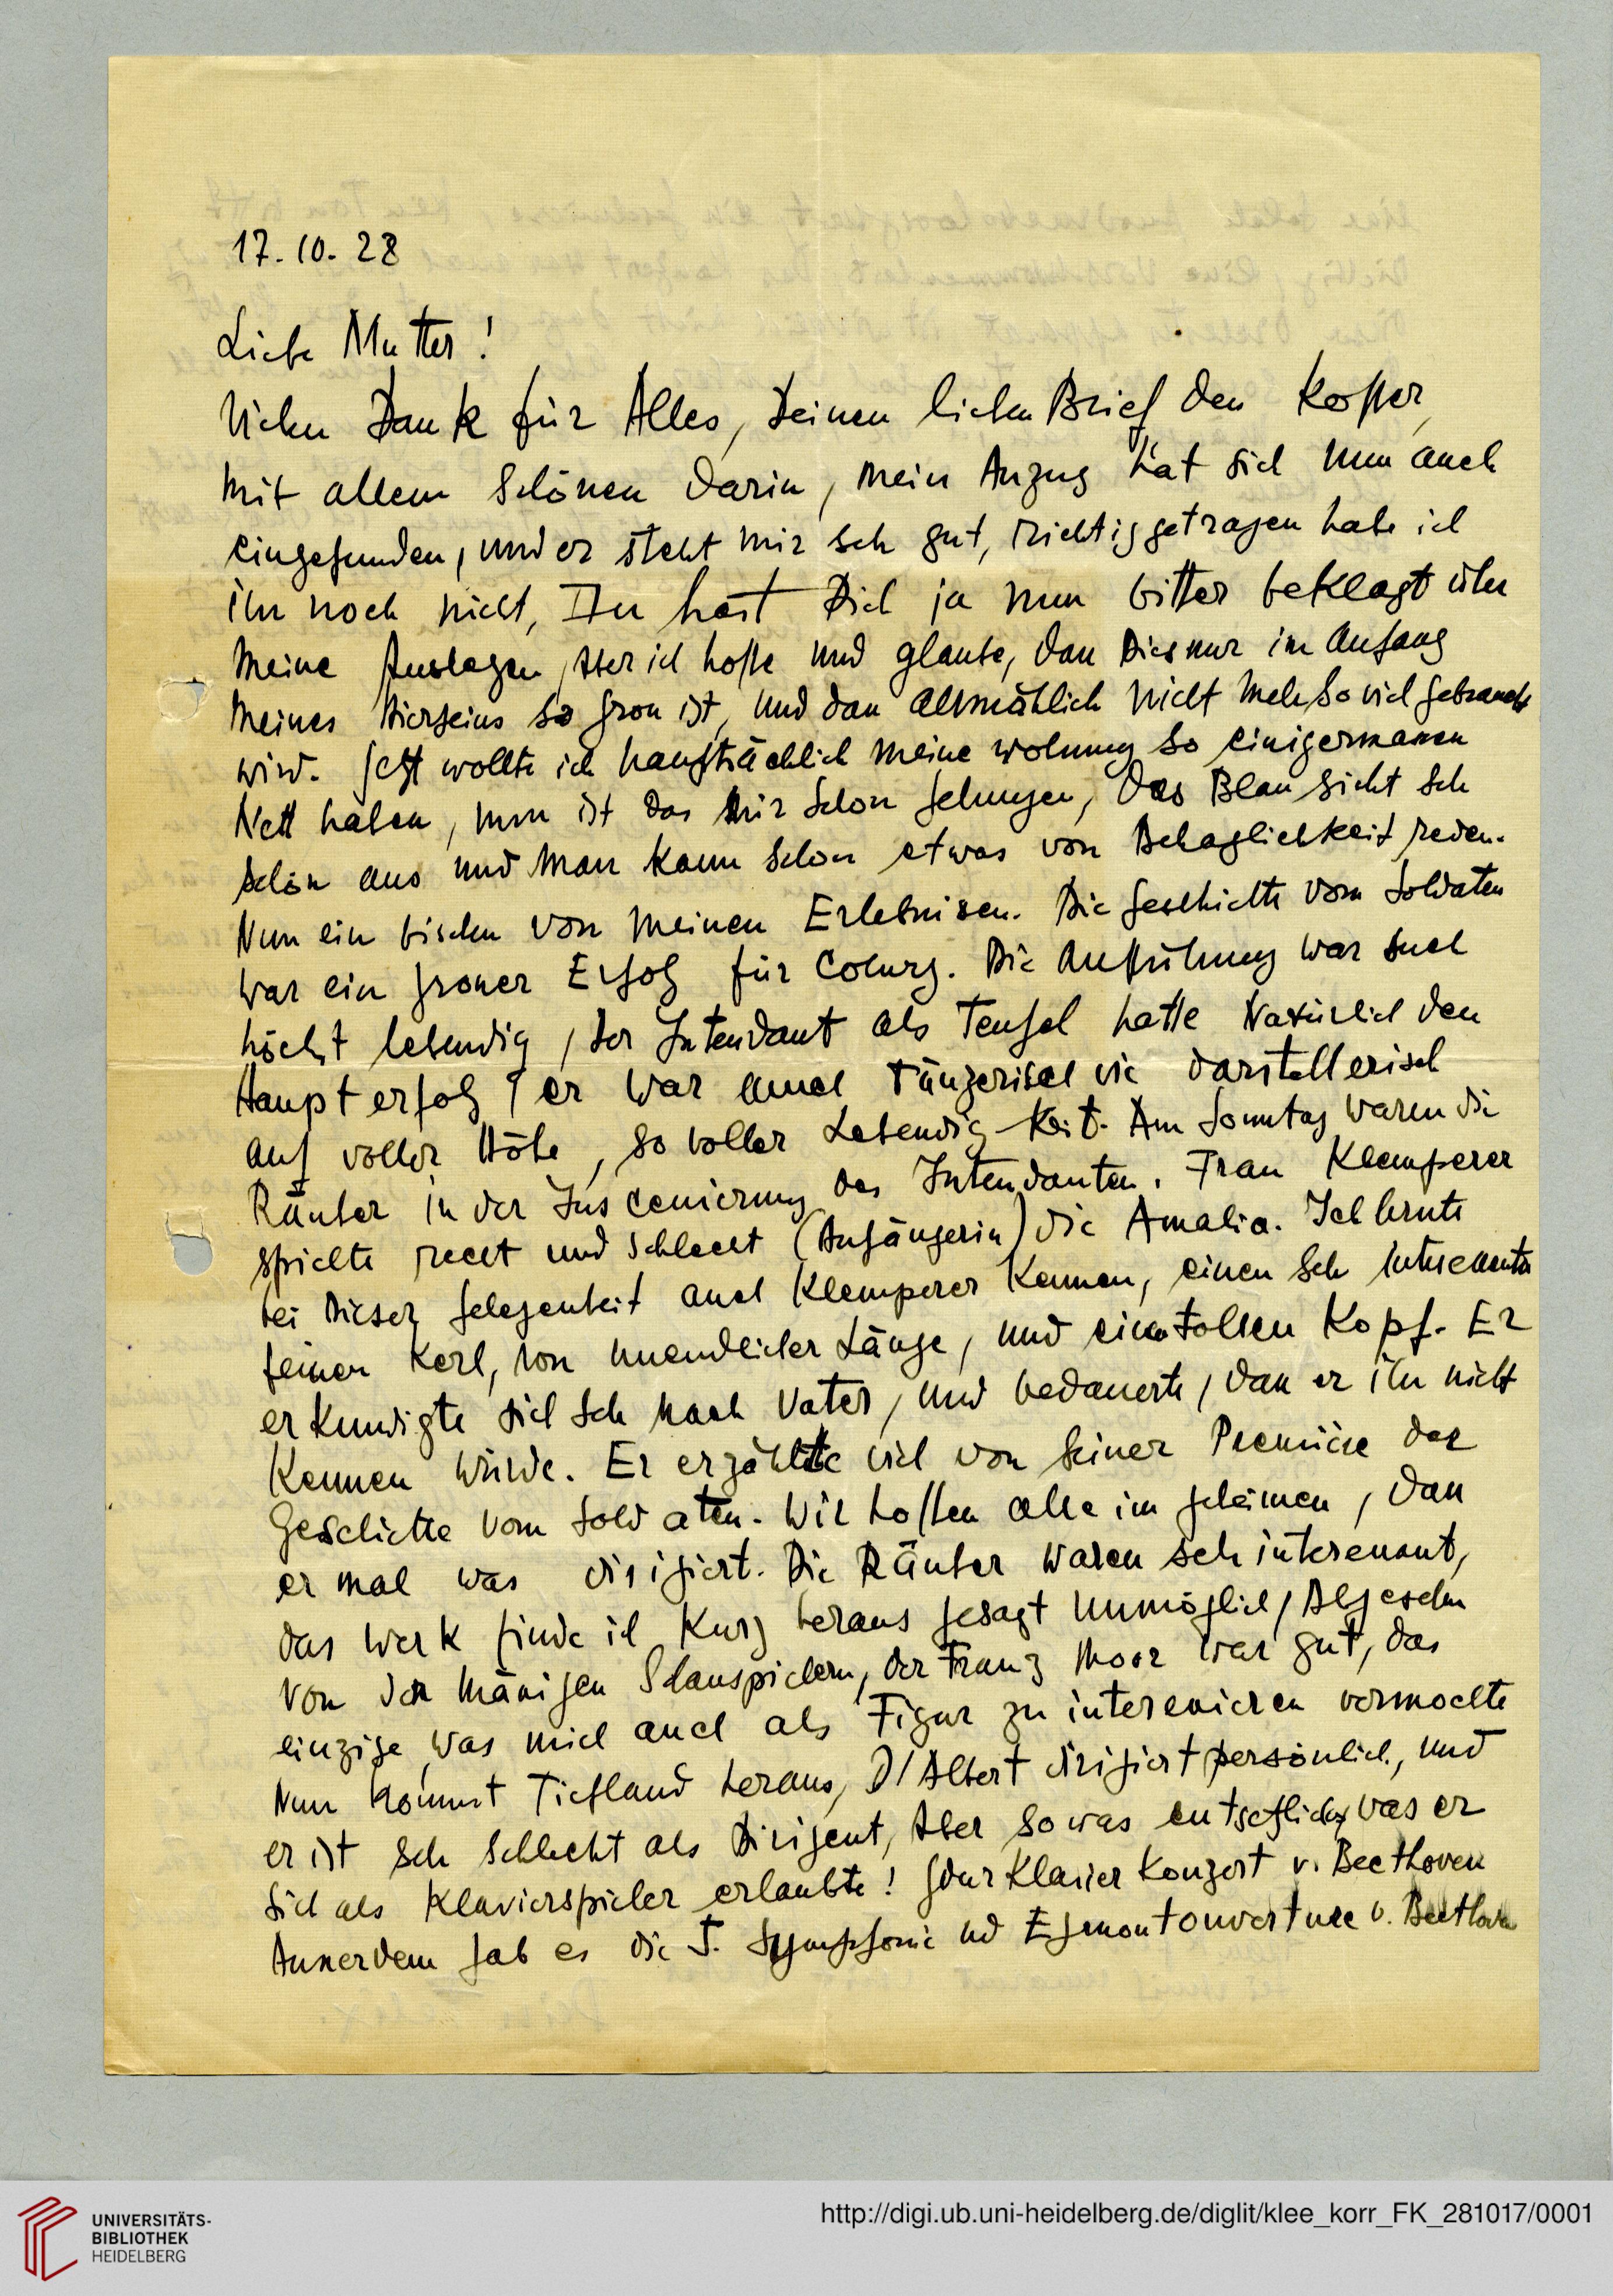 17.10.28
Liebe Mutter!
Vielen Dank für Alles, Deinen lieben Brief den Koffer,
mit allem Schönen darin, mein Anzug hat sich nun auch
eingefunden, und er steht mir sehr gut, richtig getragen habe ich
ihn noch nicht, Du hast Dich ja nun bitter beklagt über
meine Auslagen, Aber ich hoffe und glaube, dass Dies nur im Anfang
meines Hierseins so gross ist, und dass allmählich nicht mehr so viel gebraucht
wird. Jetzt wollte ich hauptsächlich meine wohnung so einigermassen
Nett haben, nun ist das mir schon gelungen, das Blau sieht sehr
schön aus und man kann schon etwas von Behaglichkeit reden.
Nun ein bischen von meinen Erlebnissen. Die Geschichte vom Soldaten
war ein grosser Erfolg für Coburg. Die Aufführung war auch
höchst lebendig, der Intendant als Teufel hatte Natürlich den
Haupterfolg, er war auch Tänzerisch wie darstellerisch
auf voller Höhe, so voller Lebendig-keit. Am Sonntag waren die
Räuber in der Inscenierung des Intendanten. Frau Klemperer
spielte recht und schlecht (Anfängerin) die Amalia. Ich lernte
bei Dieser gelegenheit auch Klemperer kennen, einen sehr interessanten
feinen Kerl, von unendlicher Länge, und einen tollen Kopf. Er
erkundigte sich sehr nach Vater, und bedauerte, dass er ihn nicht
kennen würde. Er erzählte viel von seiner Premiére der
Geschichte vom Soldaten. Wir hoffen alle im geheimen, dass
er mal was dirigiert. Die Räuber waren sehr interessant,
das Werk finde ich kurz heraus gesagt unmöglich, Abgesehen
von den mässigen Schauspielern, der Franz Moor war gut, das
einzige was mich auch als Figur zu interessieren vermochte
Nun kommt Tiefland heraus, D'Albert dirigiert persönlich, und
er ist sehr schlecht als Dirigent, Aber sowas entsetzliches was er
sich als Klavierspieler erlaubte! Gdur Klavier Konzert v. Beethoven
Ausserdem gab es die 5. Symphonie ud Egmontouverture v. Beethoven
UNIVERSITÄTS-
BIBLIOTHEK
HEIDELBERG
http://digi.ub.uni-heidelberg.de/diglit/klee_korr_FK_281017/0001